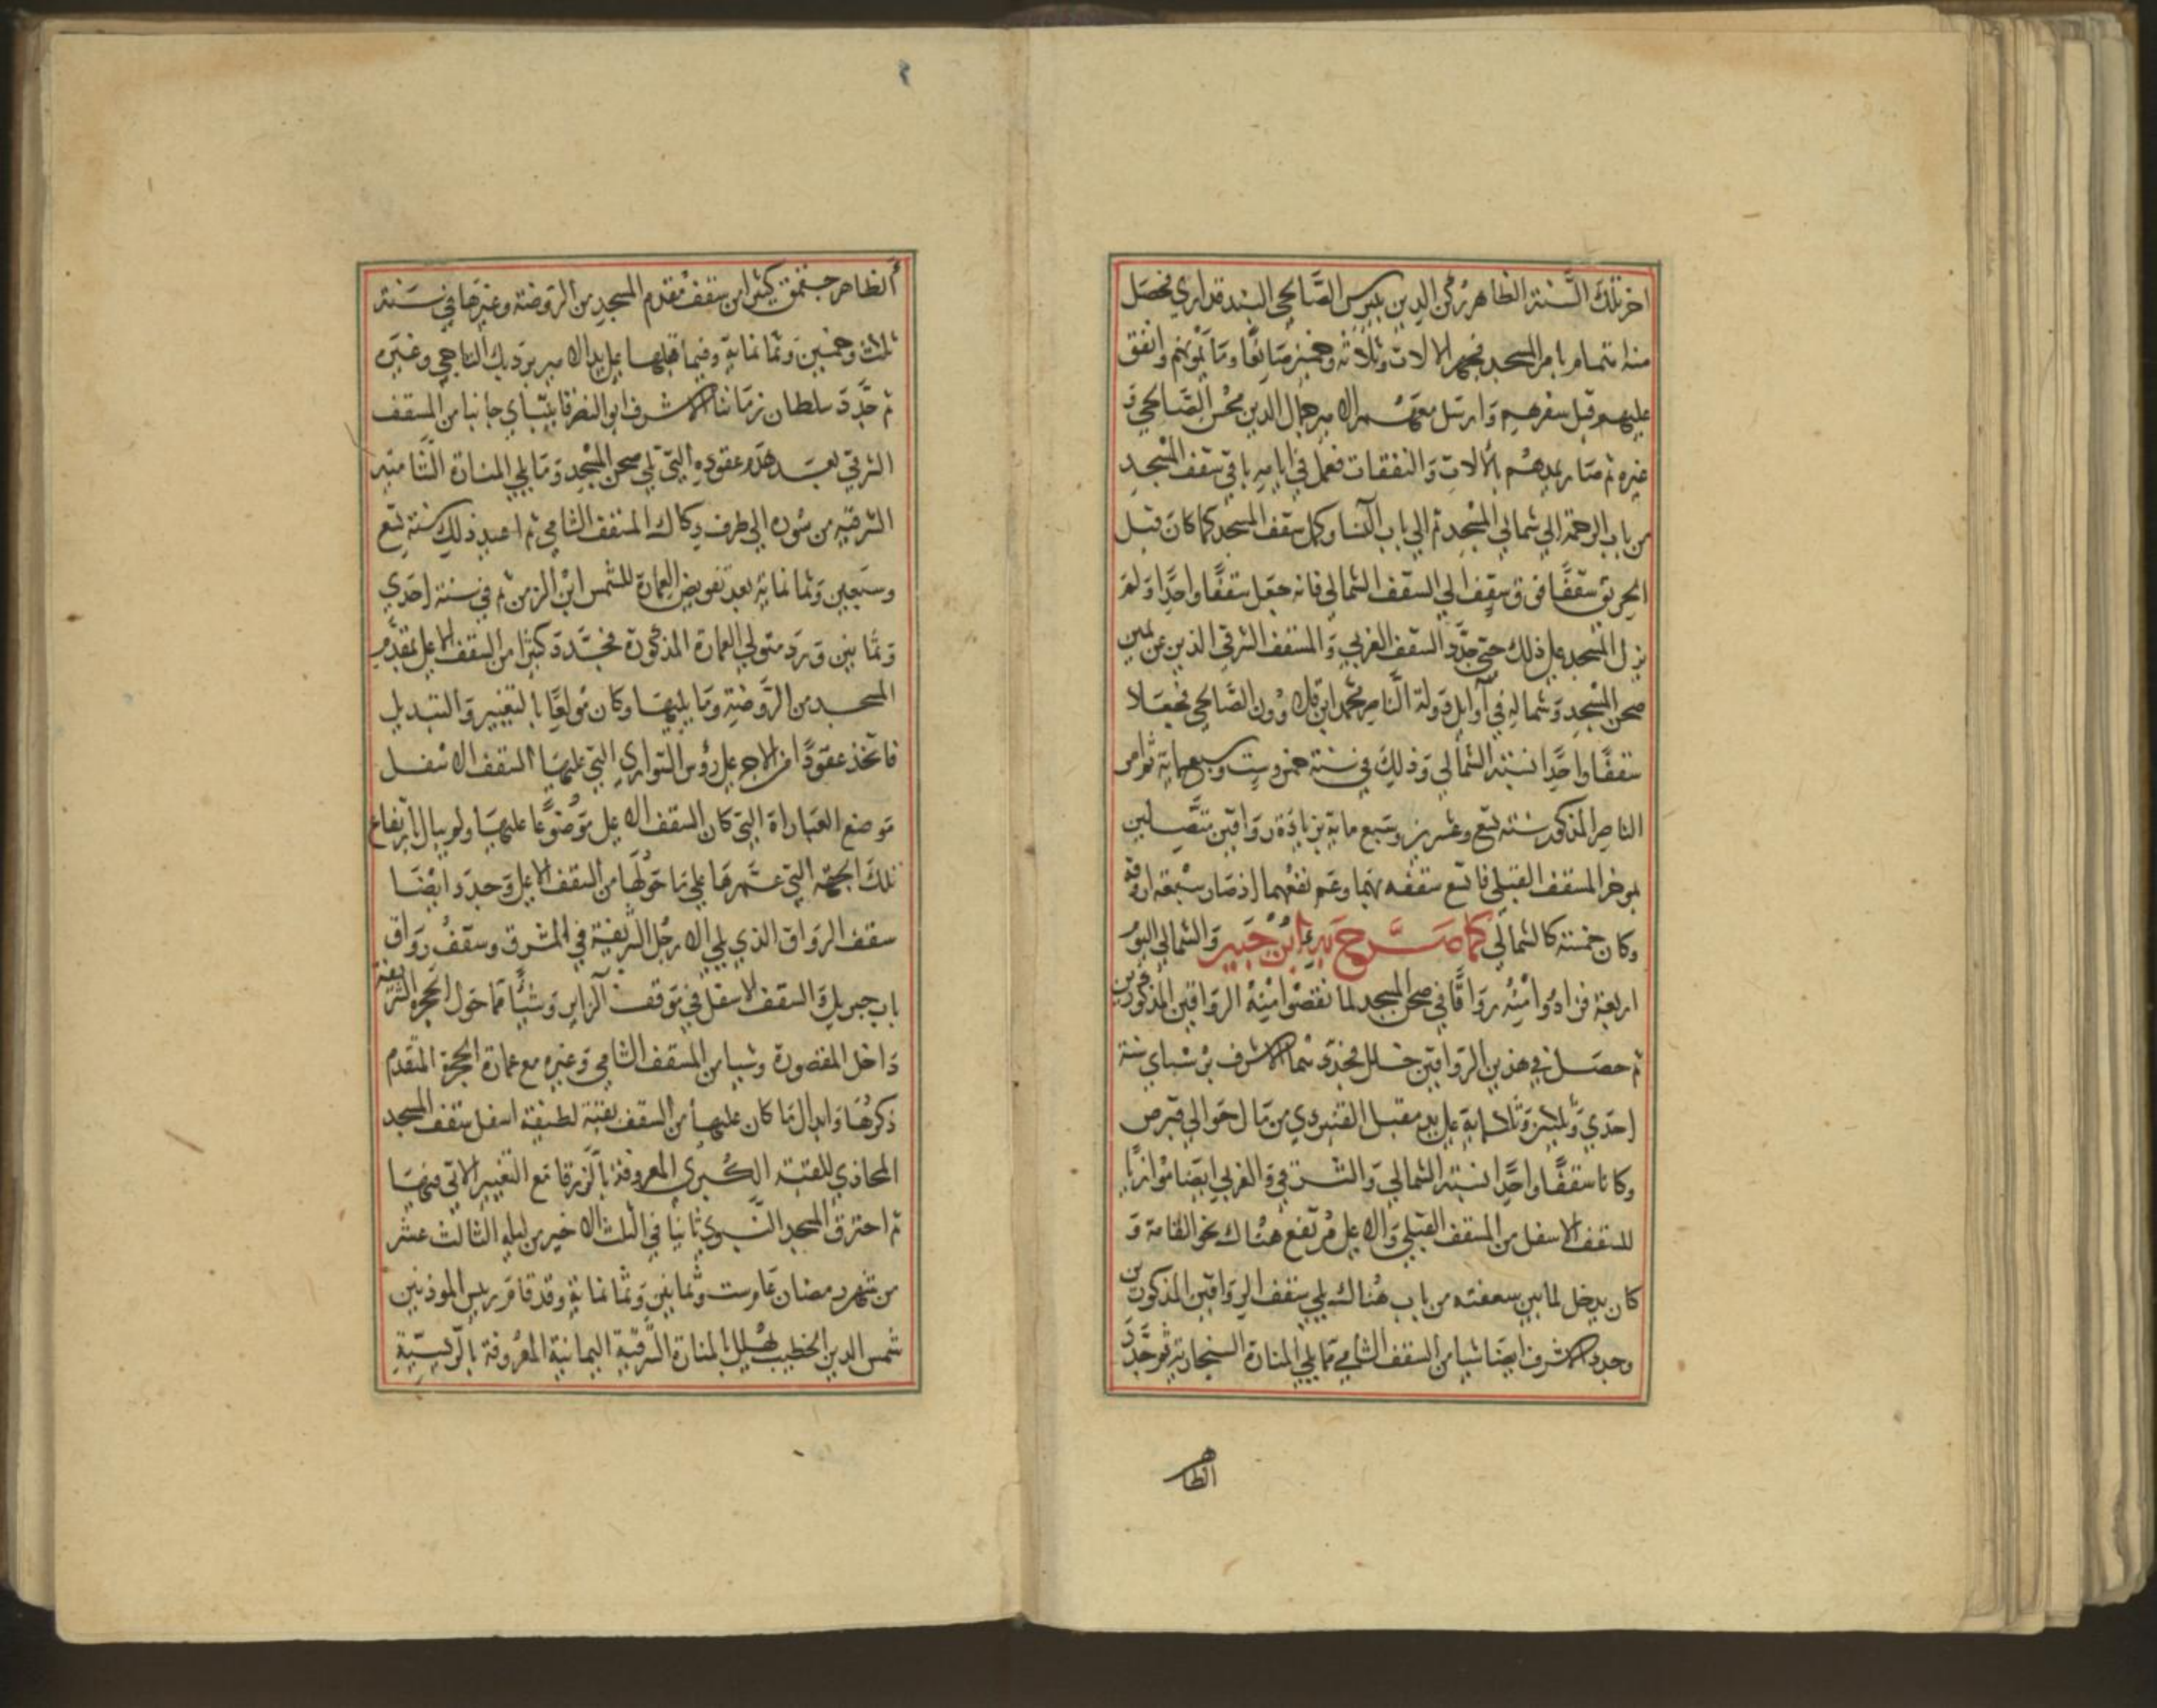 اخر تلك السنة الظاهر ركن الدين بيبرس الصالحي البندقداري فحصل
منه اهتمام بامر المسجد فجهز الالات وثلاثة وخمسين صانعا وما يمونهم وانفق
عليهم قبل سفرهم وارسل معهم الامير جمال الدين محسن الصالحي و
غيره ثم صار يمدهم بالالات والنفقات فعمل في ايامه باقي سقف المسجد
من باب الرحمة الي شمالي المسجد ثم الي باب النسا وكمل سقف المسجد كما كان قبل
الحريق سقفا فوق سقف الي السقف الشمالي فانه جعل سقفا واحدا ولم
يزل المسجد علي ذلك حتي جدد السقف الغربي والمسقف الشرقي الذين عن يمين
صحن المسجد وشماله في اوايل دولة الناصر محمد ابن قلاوون الصالحي فجعلا
سقفا واحدا نسبة الشمالي وذلك في سنة خمس وست وسبعماية ثم امر
الناصر المذكور سنة تسع وعشرين وسبع ماية بزيادة رواقين متصلين
بموخر المسقف القبلي فاتسع سقفه بهما وعم نفعهما اذ صار سبعة اروقة
وكان خمسة كالشمالي كما صرح به ابن جبير والشمالي اليوم
اربعة فزادوا منه رواقا في صحن المسجد لما نقصوا منه الرواقين المذكورين
ثم حصل في هذين الرواقين خلل فجددهما الاشرف برسباي سنة
احدي وثلاثين وثمانماية علي يد مقبل القديدي من مال حوالي قبرص
وكانا سقفا واحدا نسبة الشمالي والشرقي والغربي ايضا موازيا
للسقف الاسفل من المسقف القبلي والاعلي مرتفع هناك نحو القامة و
كان يدخل لما بين سقفيه من باب هناك يلي سقف الرواقين المذكورين
وجدد الاشرف ايضا شيا من السقف الشامي مما يلي المنارة السنجارية ثم جدد
الظاهر
الظاهر جقمق كثيرا من سقف مقدم المسجد من الروضة وغيرها في سنة
ثلاث وخمسين وثمانماية وفيما قبلها علي يد الامير بردبك التاجي وغيره
ثم جدد سلطان زماننا الاشرف ابو النصر قايتباي جانبا من المسقف
الشرقي بعد هدم عقوده التي تلي صحن المسجد وما يلي المنارة الشامية
الشرقية من سوره الي طرف دكاك المسقف الشامي ثم اعيد ذلك سنة تسع
وسبعين وثمانماية بعد تفويض العمارة للشمس ابن الزمن ثم في سنة احدي
وثمانين ورد متولي العمارة المذكورة فجدد كثيرا من السقف الاعلي بمقدم
المسجد من الروضة وما يليها وكان مولعا بالتغيير والتبديل
فاتخذ عقودا من الاجر علي رؤس السواري التي عليها السقف الاسفل
موضع العباراة التي كان السقف الاعلي موضوعا عليها ولم يبال بارتفاع
تلك الجهة التي عمرها علي ما حولها من السقف الاعلي وجدد ايضا
سقف الرواق الذي يلي الارجل الشريفة في المشرق وسقف رواق
باب جبريل والسقف الاسفل في موقف الزاير وشيا مما حول الحجرة الشريفة
داخل المقصورة وشيا من المسقف الشامي وغيره مع عمارة الحجرة المتقدم
ذكرها وابدال ما كان عليها من السقف بقبة لطيفة اسفل سقف المسجد
المحاذي للقبة الكبري المعروفة بالزرقا مع التغيير الاتي فيها
ثم احترق المسجد النبوي ثانيا في الثلث الاخير من ليلة الثالث عشر
من شهر رمضان عام ست وثمانين وثمانماية وقد قام رييس الموذنين
شمس الدين الخطيب يهلل بالمنارة الشرقية اليمانية المعروفة بالرييسية